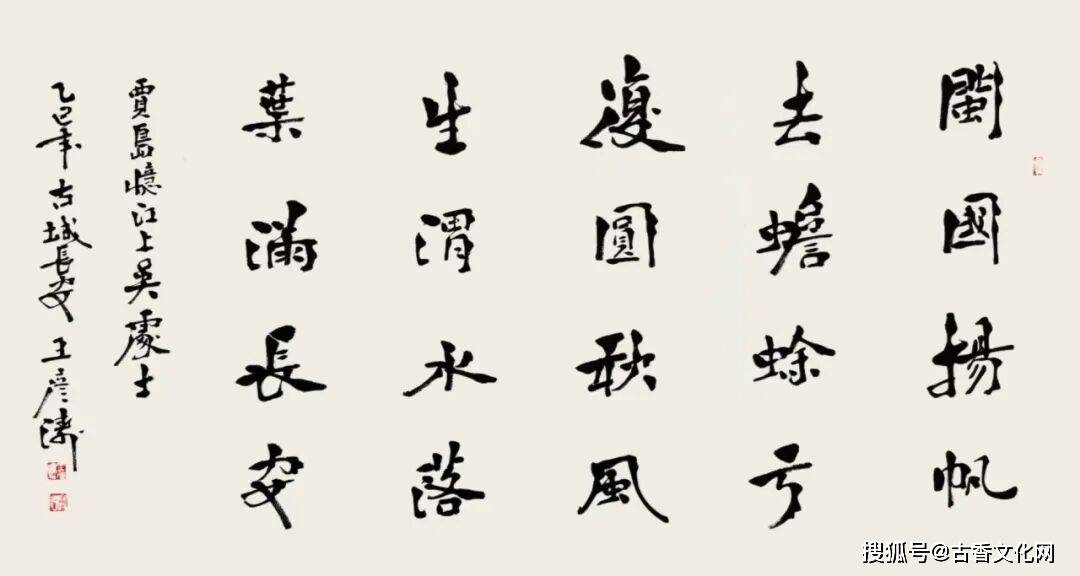 閩國揚帆
去蟾蜍亏
復圓秋風
生渭水落
葉滿長安
賈島憶江上吳處士
乙巳年古城長安王彦濤
搜狐号@古香文化网